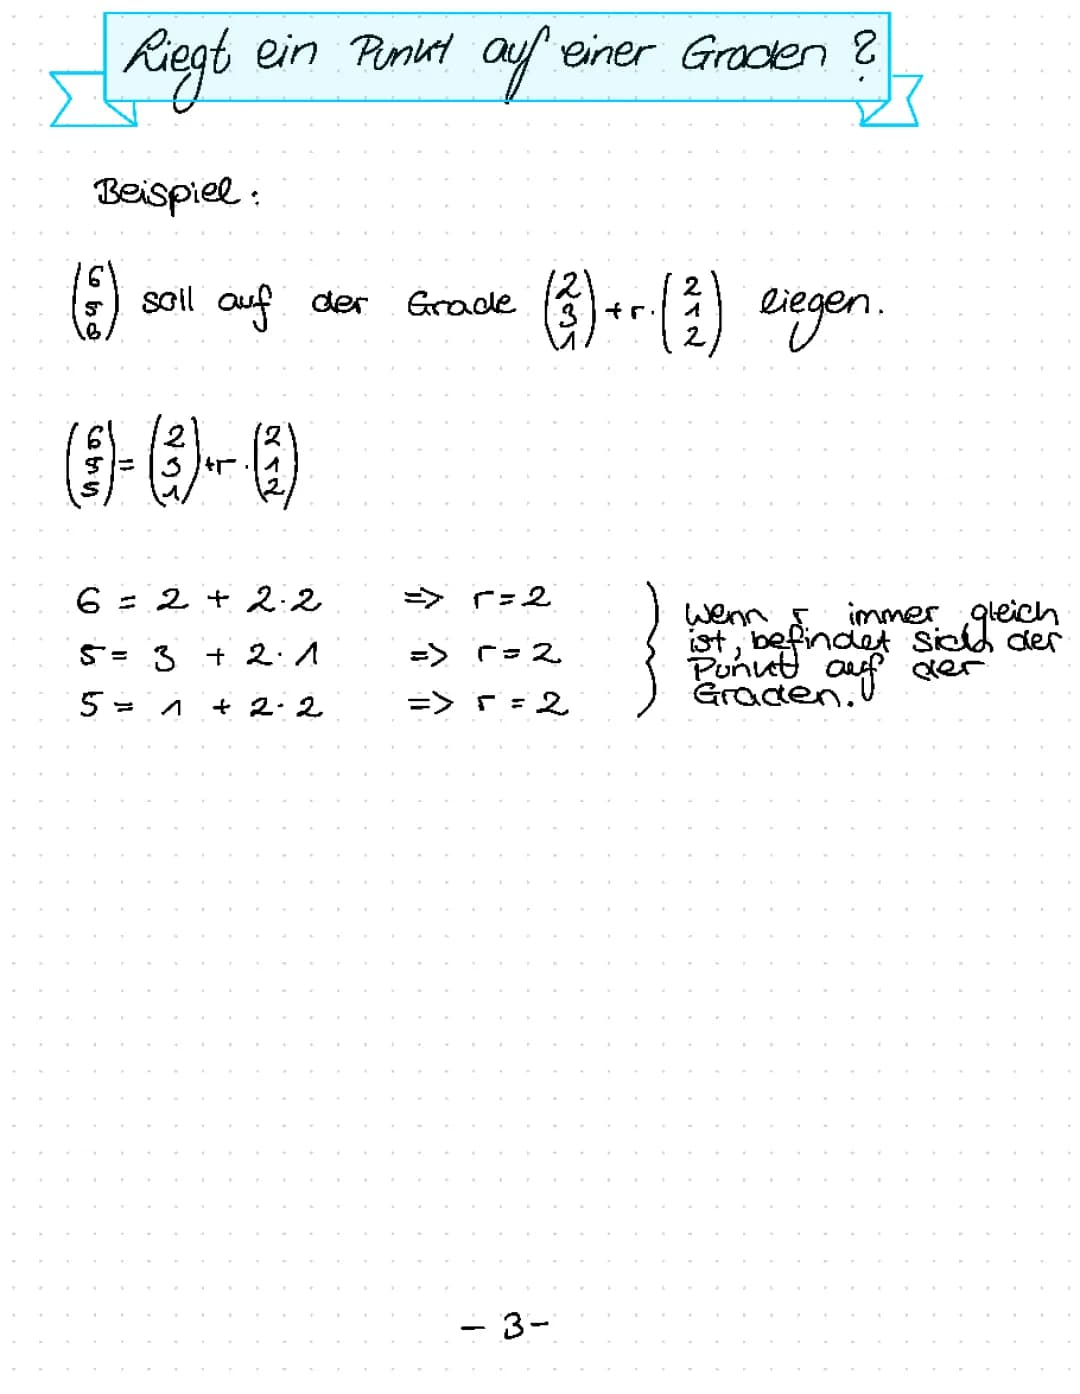 Liegt ein Punkt auf einer Graden ?
Beispiel :
(6 5 6) soll auf der Grade (2 3 1) + r · (2 1 2) liegen.
(6 5 5) = (2 3 1) + r · (2 1 2)
6 = 2 + 2 · 2 => r = 2
5 = 3 + 2 · 1 => r = 2
5 = 1 + 2 · 2 => r = 2
Wenn r immer gleich
ist, befindet sich der
Punkt auf der
Graden.
- 3 -